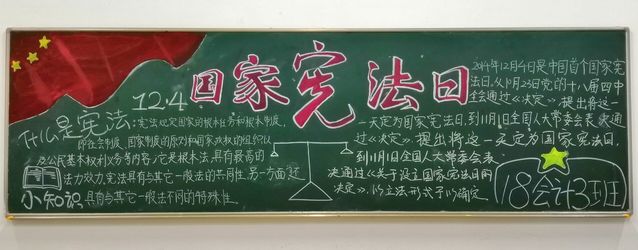 12.4
国家宪法日
什么是宪法:
宪法规定国家的根本任务和根本制度,
即社会制度、国家制度的原则和国家政权的组织以
及公民基本权利义务等内容,它是根本法,具有最高的
法力效力,宪法具有与其它一般法的共同性,另一方面还
具有与其它一般法不同的特殊性.
小知识
2014年12月4日是中国首个国家宪
法日,义10月23日党的十八届四中
全会通过《决定》,提出将这一
一天定为国家宪法日,到11月1日全国人大常委会表决通
过《决定》,提出将这一天定为国家宪法日,
到11月1日全国人大常委会表
决通过《关于设立国家宪法日的
决定》,以立法形式予以确定.
18会计3班